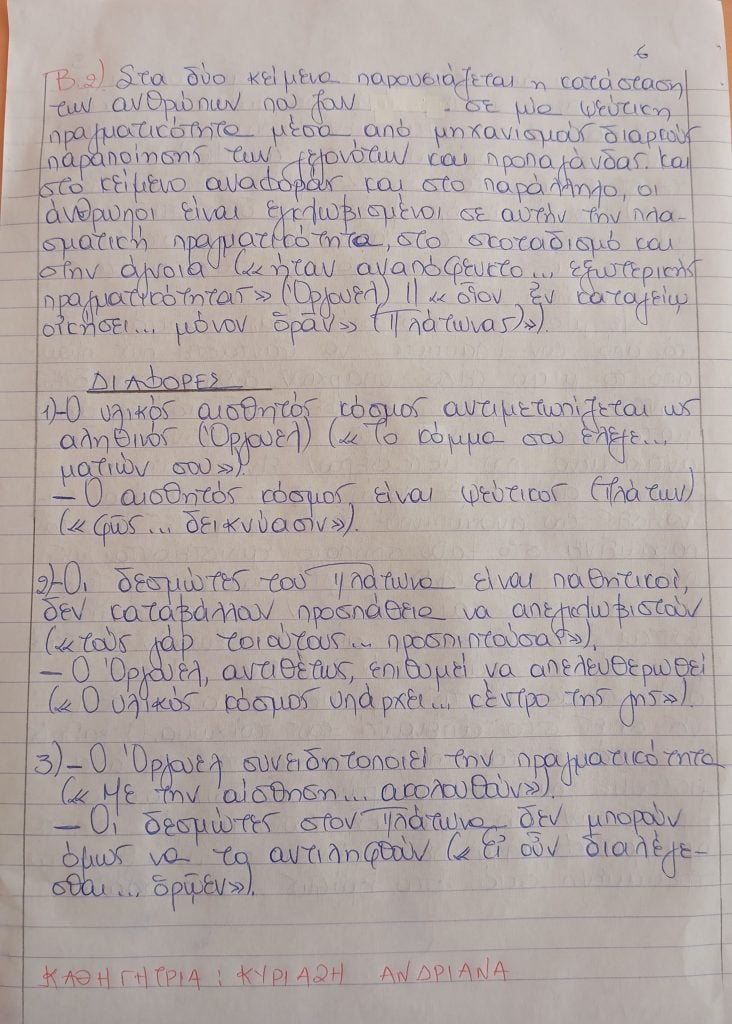 6
Β.2) Στα δύο κείμενα παρουσιάζεται η κατάσταση
των ανθρώπων που ζουν σε μια ψεύτικη
πραγματικότητα μέσα από μηχανισμούς διαρκούς
παραποίησης των γεγονότων και προπαγάνδας. Και
στο κείμενο αναφοράς και στο παράλληλο, οι
άνθρωποι είναι εγκλωβισμένοι σε αυτήν την πλα-
σματική πραγματικότητα, στο σκοταδισμό και
στην άγνοια (« ήταν αναπόφευκτο... εξωτερικής
πραγματικότητας» (Όργουελ) || « οἷον ἐν καταγείῳ
οἰκήσει... μόνον ὁρᾶν» (Πλάτωνας)»).
ΔΙΑΦΟΡΕΣ
1)-Ο υλικός αισθητός κόσμος αντιμετωπίζεται ως
αληθινός (Όργουελ) (« Το κόμμα σου έλεγε...
ματιών σου»).
– Ο αισθητός κόσμος είναι ψεύτικος (Πλάτων)
(« φῶς... δεικνύασιν»).
2)-Οι δεσμώτες του Πλάτωνα είναι παθητικοί,
δεν καταβάλλουν προσπάθεια να απεγκλωβιστούν
(« τοὺς γὰρ τοιούτους... προσπιπτούσας»).
– Ο Όργουελ, αντιθέτως, επιθυμεί να απελευθερωθεί
(« Ο υλικός κόσμος υπάρχει... κέντρο της γης»).
3)– Ο Όργουελ συνειδητοποιεί την πραγματικότητα
(« Με την αίσθηση... ακολουθούν»).
– Οι δεσμώτες στον Πλάτωνα δεν μπορούν
όμως να το αντιληφθούν (« Εἰ οὖν διαλέγε-
σθαι... ὁρῷεν»).
ΚΑΘΗΓΗΤΡΙΑ : ΚΥΡΙΑΖΗ ΑΝΔΡΙΑΝΑ